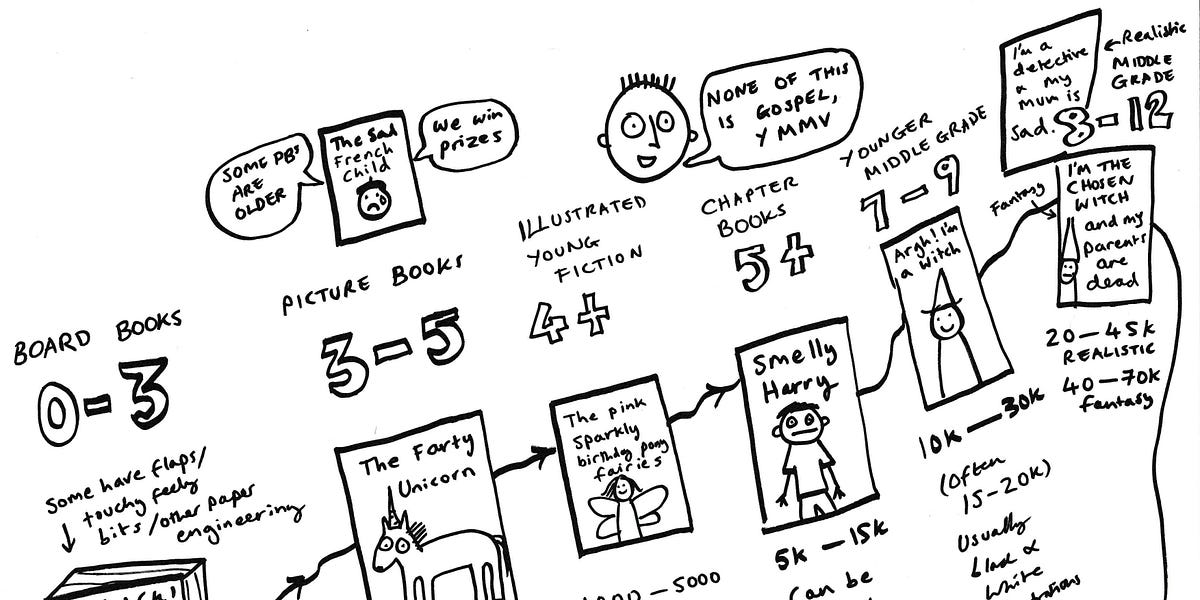 BOARD BOOKS
0-3
some have flaps/
touchy feely
bits/other paper
engineering
SOME PBs
ARE
OLDER
The Sad
French
Child
We win
prizes
PICTURE BOOKS
3-5
The Farty
Unicorn
ILLUSTRATED
YOUNG
FICTION
4+
The pink
sparkly
birthday pony
fairies
5000
NONE OF THIS
IS GOSPEL,
YMMV
CHAPTER
BOOKS
5+
Smelly
Harry
5k-15k
Can be
YOUNGER
MIDDLE GRADE
7-9
Argh! I'm
a witch
10k-30k
(Often
15-20k)
Usually
black &
white
I'm a
detective
& my
mum is
sad.
Realistic
MIDDLE
GRADE
8-12
Fantasy
I'M THE
CHOSEN
WITCH
and my
parents
are
dead
20-45k
REALISTIC
40-70k
fantasy